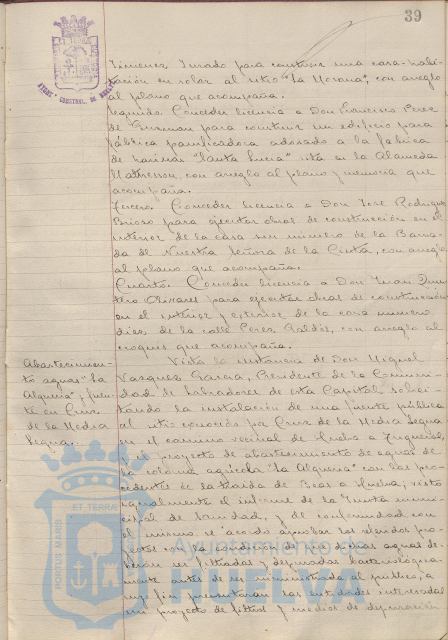 39
Jimenez Jurado para construir una casa-habi-
tación en solar al sitio "La Morana", con arreglo
al plano que acompaña.
Segundo. Conceder licencia a Don Francisco Perez
de Guzman para construir un edificio para
fábrica panificadora adosado a la fabrica
de harinas "Santa Lucia" sita en la Alameda
con arreglo al plano y memoria que
acompaña.
Tercero. Conceder licencia a Don José Rodriguez
Brioso para ejecutar obras de construcción en el
interior de la casa sin numero de la Barria-
da de Nuestra Señora de la Cinta, con arreglo
al plano que acompaña.
Cuarto. Conceder licencia a Don Juan Quin-
tero Olivares para ejecutar obras de construcción
en el interior y exterior de la casa numero
diez de la calle Perez Galdós, con arreglo al
croquis que acompaña.
Abastecimien-
to aguas "La
Alqueria" y fuen-
te en Cruz
de la Media
Legua.
Vista la instancia de Don Miguel
Vazquez Garcia, Presidente de la Comuni-
dad de Labradores de esta Capital, solici-
tando la instalación de una fuente pública
al sitio conocido por Cruz de la Media Legua
en el camino vecinal de Huelva a Trigueros,
y el proyecto de abastecimiento de aguas de
la colonia agricola "La Alqueria" con las pro-
cedentes de la traida de Beas a Huelva; visto
igualmente el informe de la Junta munici-
cipal de Sanidad, y de conformidad con
el mismo, se acordó aprobar los referidos pro-
yectos con la condición de que dichas aguas de-
berán ser filtradas y depuradas bacteriologica-
mente antes de ser suministrada al público, a
cuyo fin presentarán las entidades interesadas
un proyecto de filtros y medios de depuración
PORTUS MARIS
ET TERRAE
HUELVA